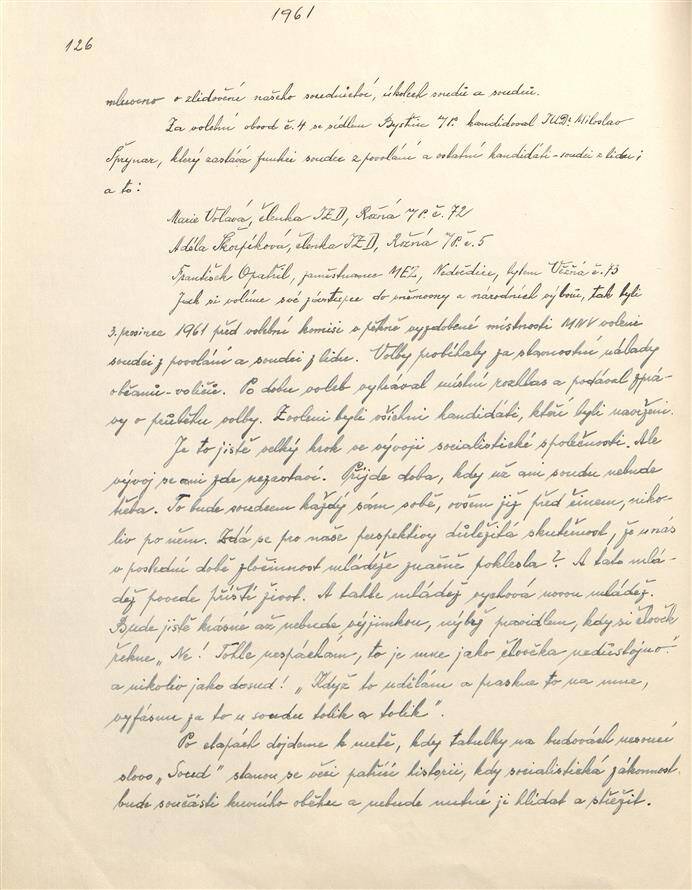 1961
126
mluveno o zlidovění našeho soudnictví, úkolech soudů a soudců.
Za volební obvod č. 4 se sídlem Bystřice n/P. kandidoval JUDr Miloslav
Šprynar, který zastává funkci soudce z povolání a ostatní kandidáti-soudci z lidu;
a to:
Marie Volavá, členka JZD, Rožná n/P. č. 72
Adéla Skořepková, členka JZD, Rožná n/P. č. 5
František Opatřil, zaměstnanec MEZ, Nedvědice, bytem Věžná č. 43
Jak si volíme své zástupce do sněmovny a národních výborů, tak byli
3. prosince 1961 před volební komisí v pěkně vyzdobené místnosti MNV voleni
soudci z povolání a soudci z lidu. Volby probíhaly za slavnostní nálady
občanů-voličů. Po dobu voleb vyhrával místní rozhlas a podával zprá-
vy o průběhu volby. Zvoleni byli všichni kandidáti, kteří byli navrženi.
Je to jistě velký krok ve vývoji socialistické společnosti. Ale
vývoj se ani zde nezastaví. Přijde doba, kdy už ani soudu nebude
třeba. To bude soudcem každý sám sobě, ovšem již před činem, niko-
liv po něm. Zdá se pro naše perspektivy důležitá skutečnost, že u nás
v poslední době zločinnost mládeže značně poklesla? A tato mlá-
dež povede příští život. A tahle mládež vychová novou mládež.
Bude jistě krásné až nebude výjimkou, nýbrž pravidlem, kdy si člověk
řekne „Ne! Tohle nespáchám, to je mne jako člověka nedůstojno!"
a nikoliv jako dosud! „Když to udělám a praskne to na mne,
vyfásnu za to u soudu tolik a tolik".
Po etapách dojdeme k metě, kdy tabulky na budovách nesoucí
slovo „Soud" stanou se věcí patřící historii, kdy socialistická zákonnost
bude součástí krevního oběhu a nebude nutné ji hlídat a střežit.